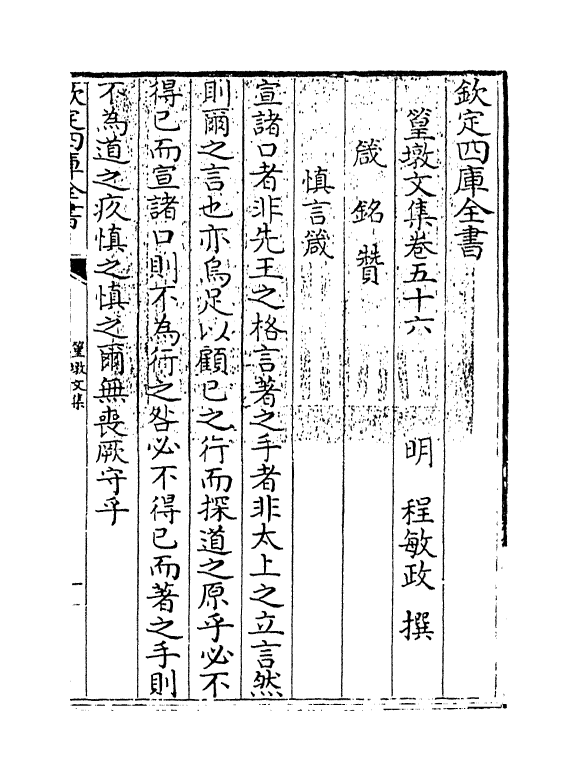 欽定四庫全書
篁墩文集卷五十六　明　程敏政　撰
箴　銘　贊
慎言箴
宣諸口者非先王之格言著之手者非太上之立言然
則爾之言也亦烏足以顧已之行而探道之原乎必不
得已而宣諸口則不為行之咎必不得已而著之手則
不為道之疚慎之慎之爾無喪厥守乎
欽定四庫全書
篁墩文集
一